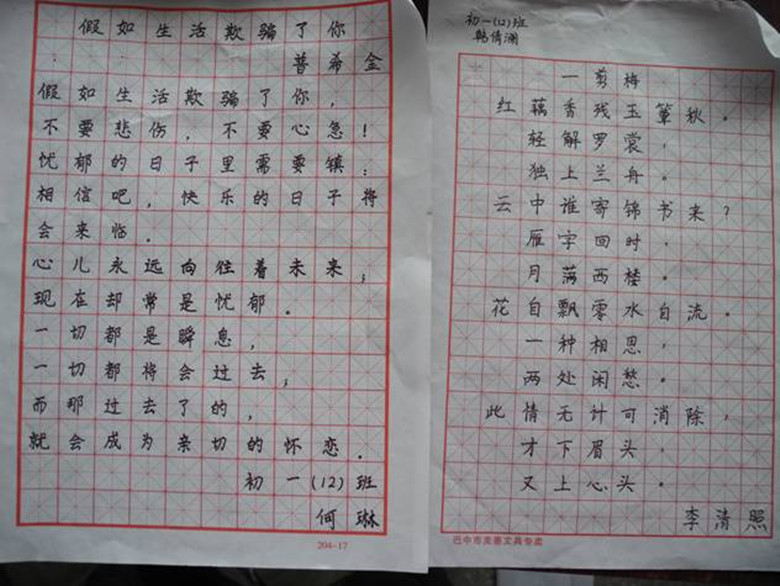 假如生活欺骗了你
普希金
假如生活欺骗了你，
不要悲伤，不要心急！
忧郁的日子里需要镇：
相信吧，快乐的日子将
会来临．
心儿永远向往着未来；
现在却常是忧郁．
一切都是瞬息，
一切都将会过去；
而那过去了的，
就会成为亲切的怀恋．
初一(12)班
何琳
204-17
初一(12)班
韩倩澜
一剪梅
红藕香残玉簟秋。
轻解罗裳，
独上兰舟。
云中谁寄锦书来？
雁字回时，
月满西楼。
花自飘零水自流。
一种相思，
两处闲愁。
此情无计可消除，
才下眉头，
又上心头。
李清照
巴中市美惠文具专卖